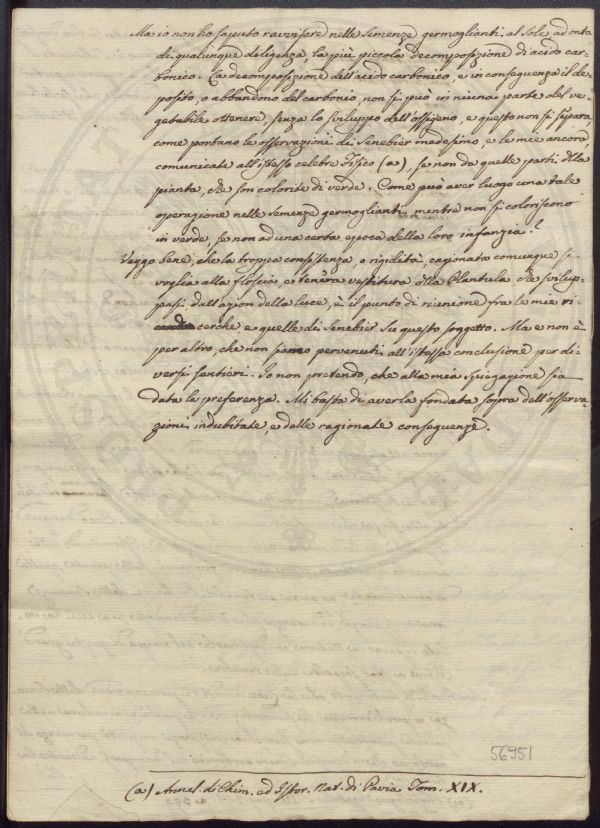 Ma io non ho saputo ravvisare nelle Semenze germoglianti al Sole, ad onta
di qualunque diligenza, la più piccola decomposizione di acido car-
bonico. La decomposizione dell'acido carbonico, e in conseguenza il de-
posito, o abbandono del carbonio, non si può in niuna parte del ve-
getabile ottenere, senza lo sviluppo dell'ossigeno, e questo non si separa
come portano le osservazioni di Senebier medesimo, e le mie ancora
comunicate all'istesso celebre Fisico (a), se non da quelle parti della
pianta, che son colorite di verde. Come può aver luogo una tale
operazione nelle Semenze germoglianti, mentre non si coloriscono
in verde, se non ad una certa epoca della loro infanzia?
Veggo bene, che la troppa consistenza, o rigidità, cagionata comunque si
voglia alla floscia, e tenera vestitura della Plantula che svilup-
pasi dall'azion della luce, è il punto di riunione fra le mie ri
cerche e quelle di Senebier su questo soggetto. Ma e non è
per altro, che non siamo pervenuti all'istessa conclusione per di-
versi sentieri. Io non pretendo, che alla mia spiegazione sia
data la preferenza. Mi basta di averla fondata sopra dell'osserva-
zioni indubitate, e delle ragionate conseguenze.
56951
(a) Annal. di Chim. ed Istor. Nat. di Pavia Tom. XIX.